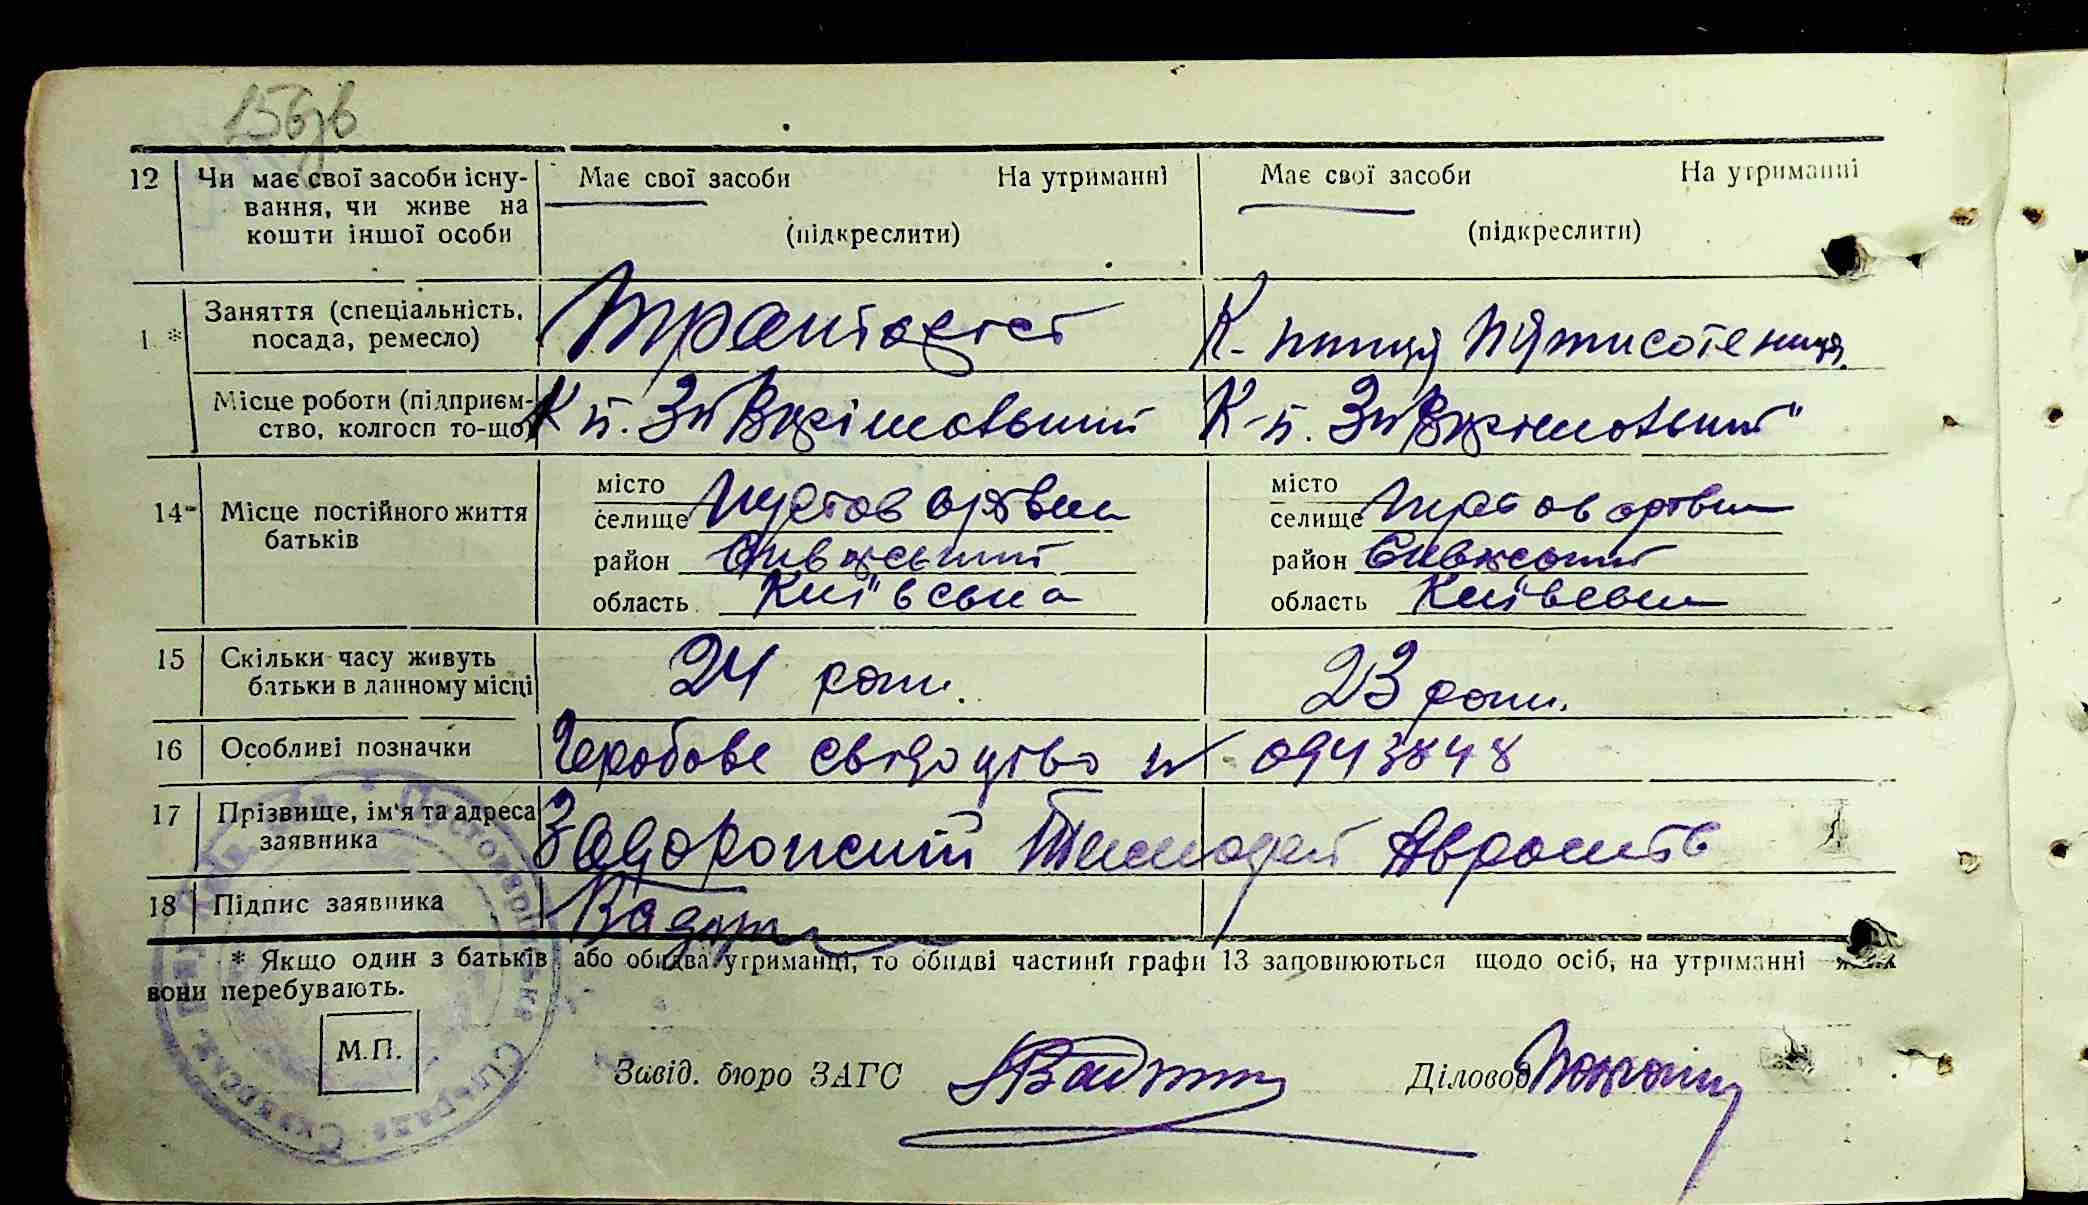 156зв
12 Чи має свої засоби існу- Має свої засоби На утриманні Має свої засоби На утриманні
вання, чи живе на (підкреслити) (підкреслити)
кошти іншої особи
1 * Заняття (спеціальність, Тракторист К-ниця Пятисотениця
посада, ремесло)
Місце роботи (підприєм- К-п. Зн К-п. Зн
ство, колгосп то-що)
14 Місце постійного життя місто місто
батьків селище Пустоварівка селище Пустоварівка
район Сквирський район Сквирський
область Київська область Київська
15 Скільки часу живуть 24 роки. 23 роки.
батьки в данному місці
16 Особливі позначки Гербове свідоцтво № 0943848
17 Прізвище, ім'я та адреса Задорожний Тимофей
заявника
18 Підпис заявника
* Якщо один з батьків або обидва утриманці, то обидві частини графи 13 заповнюються щодо осіб, на утриманні яких
вони перебувають.
М.П.
Завід. бюро ЗАГС Діловод